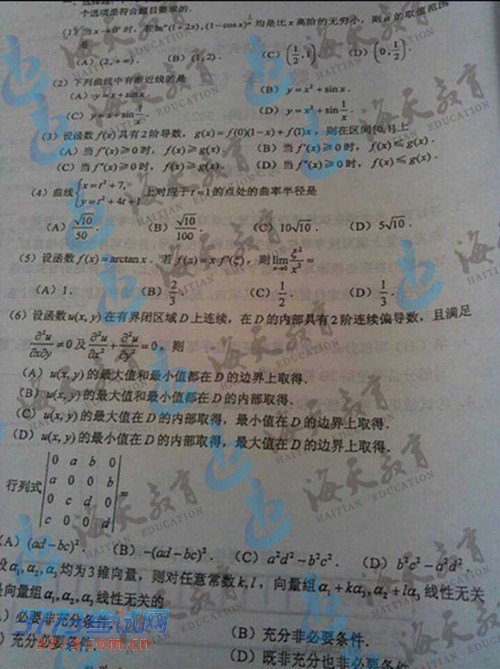 个选项是符合题目要求的.
(1) 当x→0⁺时, 若lnᵅ(1+2x), (1−cosx)^(1/α)均是比x高阶的无穷小, 则α的取值范围
是
(A) (2,+∞). (B) (1,2). (C) (1/2,1). (D) (0,1/2).
(2) 下列曲线中有渐近线的是
(A) y=x+sinx. (B) y=x²+sinx.
(C) y=x+sin1/x. (D) y=x²+sin1/x.
(3) 设函数f(x)具有2阶导数, g(x)=f(0)(1−x)+f(1)x, 则在区间[0,1]上
(A) 当f′(x)≥0时, f(x)≥g(x). (B) 当f′(x)≥0时, f(x)≤g(x).
(C) 当f″(x)≥0时, f(x)≥g(x). (D) 当f″(x)≥0时, f(x)≤g(x).
(4) 曲线{x=t²+7, y=t²+4t+1 上对应于t=1的点处的曲率半径是
(A) √10/50. (B) √10/100. (C) 10√10. (D) 5√10.
(5) 设函数f(x)=arctanx. 若f(x)=xf′(ξ), 则lim x→0 ξ²/x²=
(A) 1. (B) 2/3. (C) 1/2. (D) 1/3.
(6) 设函数u(x,y)在有界闭区域D上连续, 在D的内部具有2阶连续偏导数, 且满足
∂²u/∂x∂y≠0及∂²u/∂x²+∂²u/∂y²=0, 则
(A) u(x,y)的最大值和最小值都在D的边界上取得.
(B) u(x,y)的最大值和最小值都在D的内部取得.
(C) u(x,y)的最大值在D的内部取得, 最小值在D的边界上取得.
(D) u(x,y)的最小值在D的内部取得, 最大值在D的边界上取得.
行列式
|0 a b 0|
|a 0 0 b|
|0 c d 0|
|c 0 0 d|=
(A) (ad−bc)². (B) −(ad−bc)². (C) a²d²−b²c². (D) b²c²−a²d².
设α₁,α₂,α₃均为3维向量, 则对任意常数k,l, 向量组α₁+kα₃,α₂+lα₃线性无关
是向量组α₁,α₂,α₃线性无关的
) 必要非充分条件. (B) 充分非必要条件.
) 充分必要条件. (D) 既非充分也非必要条件.
海天教育
HAITIAN EDUCATION